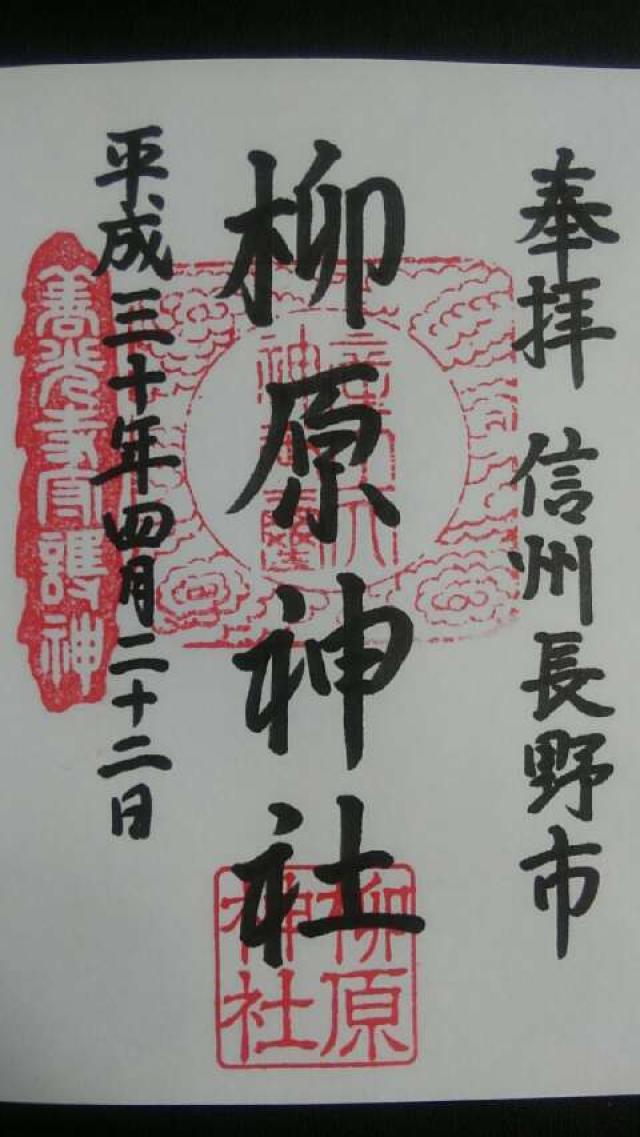 奉拝 信州長野市
柳原神社
平成三十年四月二十二日
善光寺守護神
柳原
神社